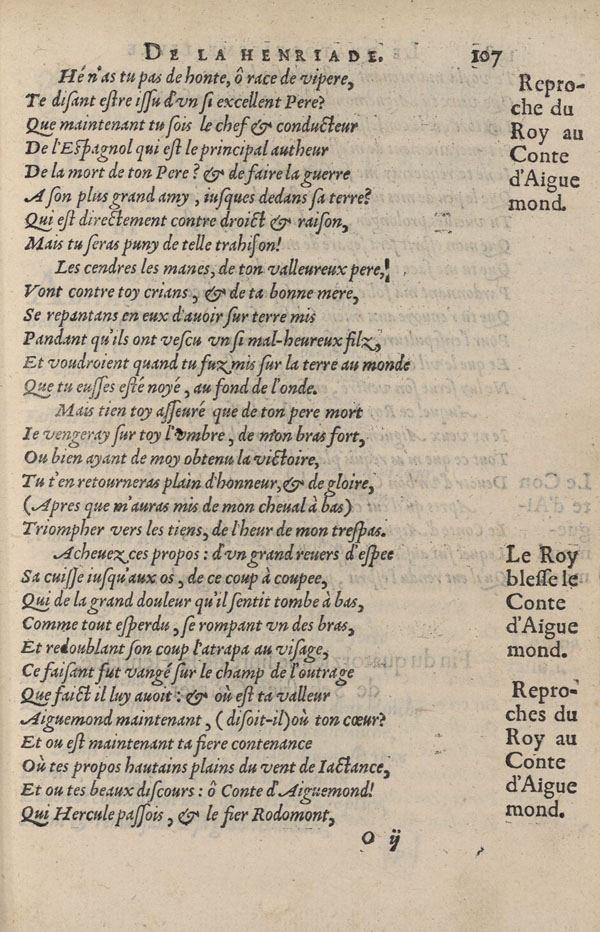 DE LA HENRIADE. 107
Hé n'as tu pas de honte, ô race de vipere,
Te disant estre issu d'vn si excellent Pere?
Que maintenant tu sois le chef & conducteur
De l'Espagnol qui est le principal autheur
De la mort de ton Pere? & de faire la guerre
A son plus grand amy, iusques dedans sa terre?
Qui est directement contre droict & raison,
Mais tu seras puny de telle trahison!
Repro-
che du
Roy au
Conte
d'Aigue
mond.
Les cendres les manes, de ton valleureux pere,!
Vont contre toy crians, & de ta bonne mere,
Se repantans en eux d'auoir sur terre mis
Pandant qu'ils ont vescu vn si mal-heureux filz,
Et voudroient quand tu fuz mis sur la terre au monde
Que tu eusses esté noyé, au fond de l'onde.
Mais tien toy asseuré que de ton pere mort
Ie vengeray sur toy l'vmbre, de mon bras fort,
Ou bien ayant de moy obtenu la victoire,
Tu t'en retourneras plain d'honneur, & de gloire,
(Apres que m'auras mis de mon cheual à bas)
Triompher vers les tiens, de l'heur de mon trespas.
Acheuez ces propos: d'vn grand reuers d'espee
Sa cuisse iusqu'aux os, de ce coup à coupee,
Qui de la grand douleur qu'il sentit tombe à bas,
Comme tout esperdu, se rompant vn des bras,
Et redoublant son coup l'atrapa au visage,
Le Roy
blesse le
Conte
d'Aigue
mond.
Ce faisant fut vangé sur le champ de l'outrage
Que faict il luy auoit: & où est ta valleur
Aiguemond maintenant, (disoit-il) où ton cœur?
Et ou est maintenant ta fiere contenance
Où tes propos hautains plains du vent de Iactance,
Et ou tes beaux discours: ô Conte d'Aiguemond!
Qui Hercule passois, & le fier Rodomont,
Repro-
ches du
Roy au
Conte
d'Aigue
mond.
O ij